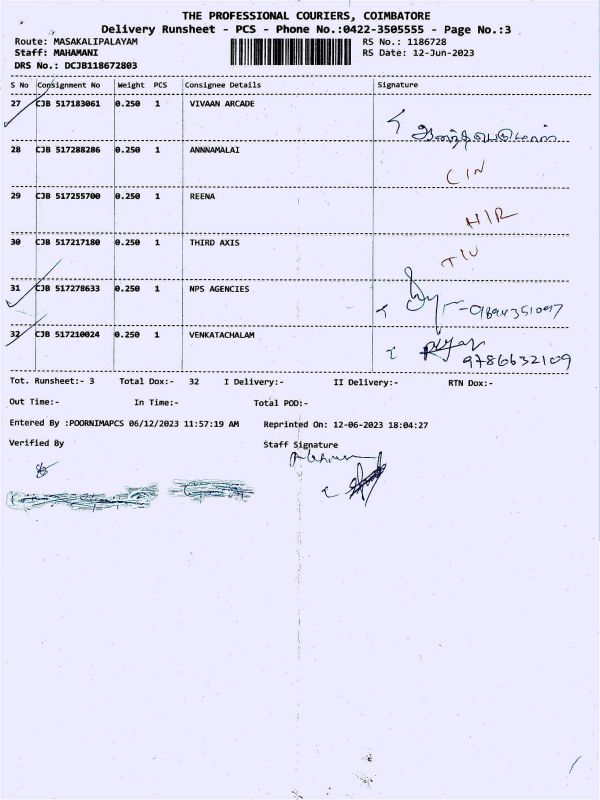 THE PROFESSIONAL COURIERS, COIMBATORE
Delivery Runsheet - PCS - Phone No.:0422-3505555 - Page No.:3
Route: MASAKALIPALAYAM RS No.: 1186728
Staff: MAHAMANI RS Date: 12-Jun-2023
DRS No.: DCJB118672803
S No Consignment No Weight PCS Consignee Details Signature
27 CJB 517183061 0.250 1 VIVAAN ARCADE
28 CJB 517288286 0.250 1 ANNNAMALAI CIN
29 CJB 517255700 0.250 1 REENA H/R
30 CJB 517217180 0.250 1 THIRD AXIS
31 CJB 517278633 0.250 1 NPS AGENCIES
32 CJB 517210024 0.250 1 VENKATACHALAM 9786632109
Tot. Runsheet:- 3 Total Dox:- 32 I Delivery:- II Delivery:- RTN Dox:-
Out Time:- In Time:- Total POD:-
Entered By :POORNIMAPCS 06/12/2023 11:57:19 AM Reprinted On: 12-06-2023 18:04:27
Verified By Staff Signature